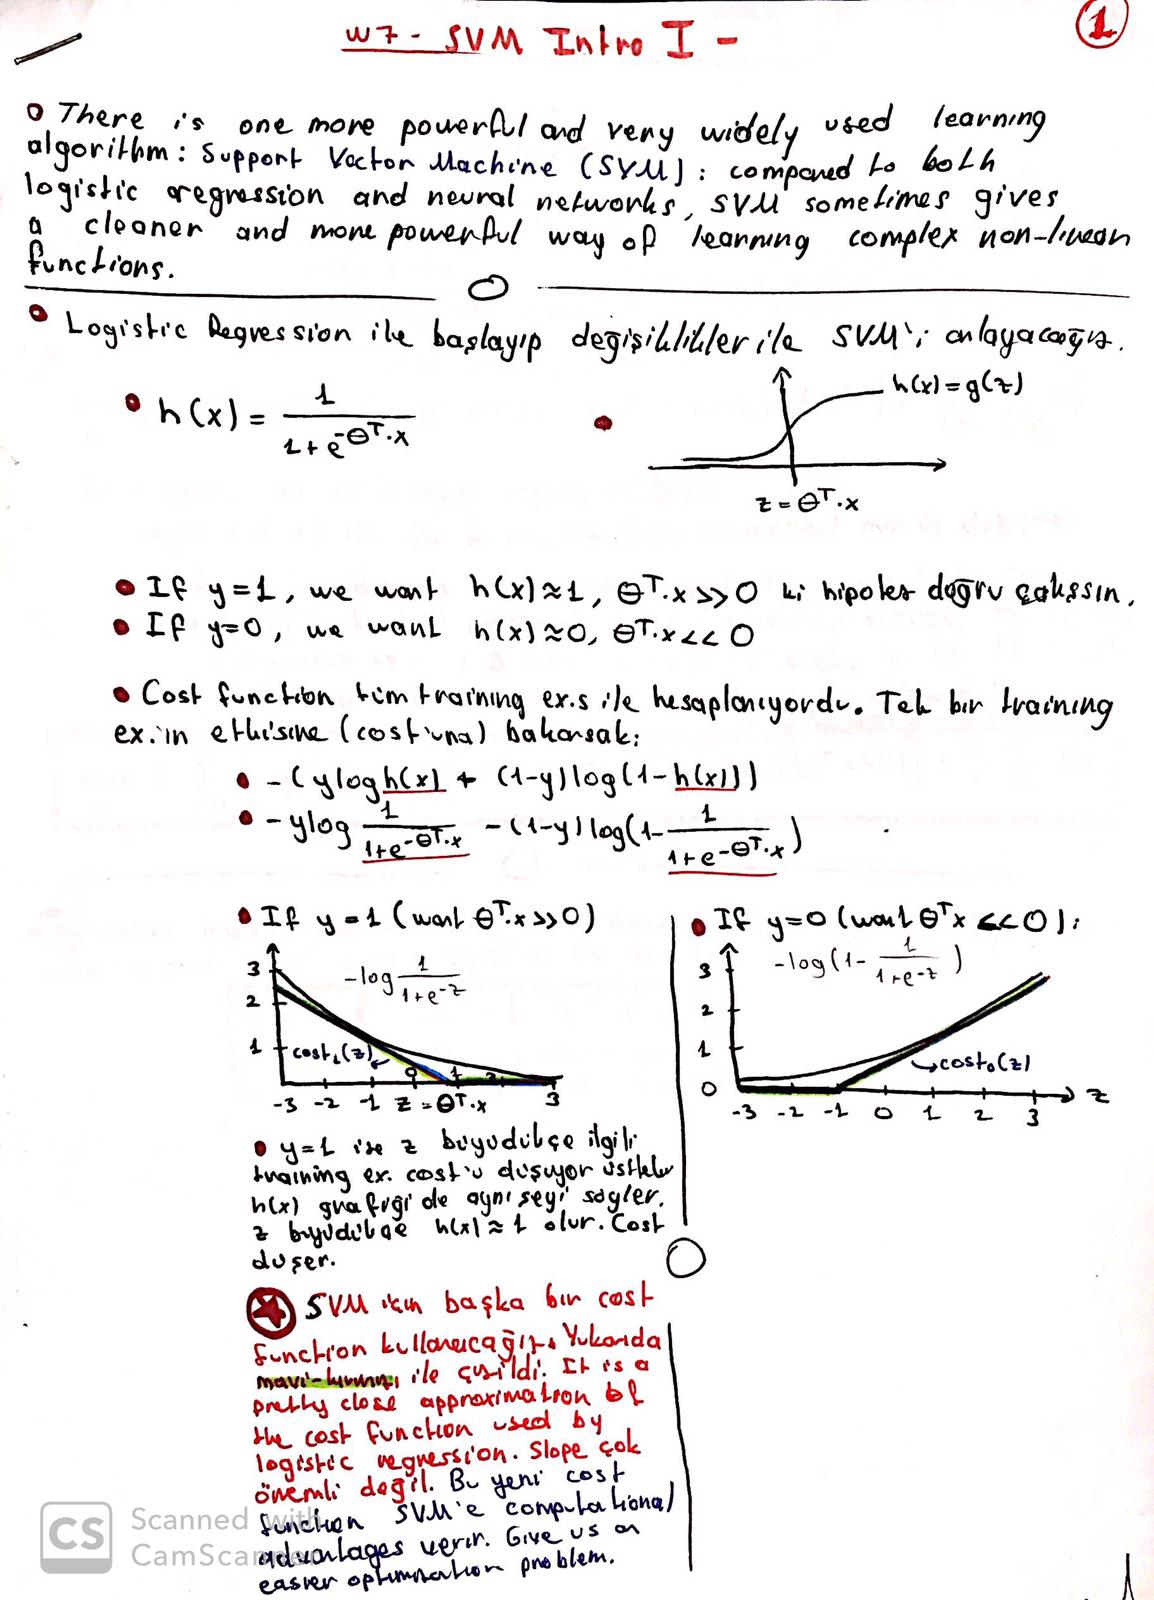 W7 - SVM Intro I -
1
There is one more powerful and very widely used learning
algorithm: Support Vector Machine (SVM): compared to both
logistic regression and neural networks, SVM sometimes gives
a cleaner and more powerful way of learning complex non-linear
functions.
Logistic Regression ile başlayıp değişiklikler ile SVM'i anlayacağız.
h(x) = 1 / (1 + e^-θᵀ.x)
h(x) = g(z)
z = θᵀ.x
If y=1, we want h(x)≈1, θᵀ.x >> 0 ki hipotez doğru çalışsın.
If y=0, we want h(x)≈0, θᵀ.x << 0
Cost function tüm training ex.s ile hesaplanıyordu. Tek bir training
ex.in etkisine (cost'una) bakarsak:
-(ylogh(x) + (1-y)log(1-h(x)))
-ylog 1/(1+e^-θᵀ.x) - (1-y)log(1- 1/(1+e^-θᵀ.x))
If y=1 (want θᵀ.x >> 0)
3
-log 1/(1+e^-z)
2
1
cost₁(z)
0 1 2
-3 -2 -1 z = θᵀ.x 3
y=1 ise z büyüdükçe ilgili
training ex. cost'u düşüyor üstteki
h(x) grafiği de aynı şeyi söyler.
z büyüdükçe h(x)≈1 olur. Cost
düşer.
If y=0 (want θᵀx << 0):
3
-log(1- 1/(1+e^-z))
2
1
cost₀(z)
0
z
-3 -2 -1 0 1 2 3
SVM için başka bir cost
function kullanıcağız. Yukarıda
mavi-kırmızı ile çizildi. It is a
pretty close approximation of
the cost function used by
logistic regression. Slope çok
önemli değil. Bu yeni cost
function SVM'e computational
advantages verir. Give us an
easier optimization problem.
CS Scanned with
CamScanner